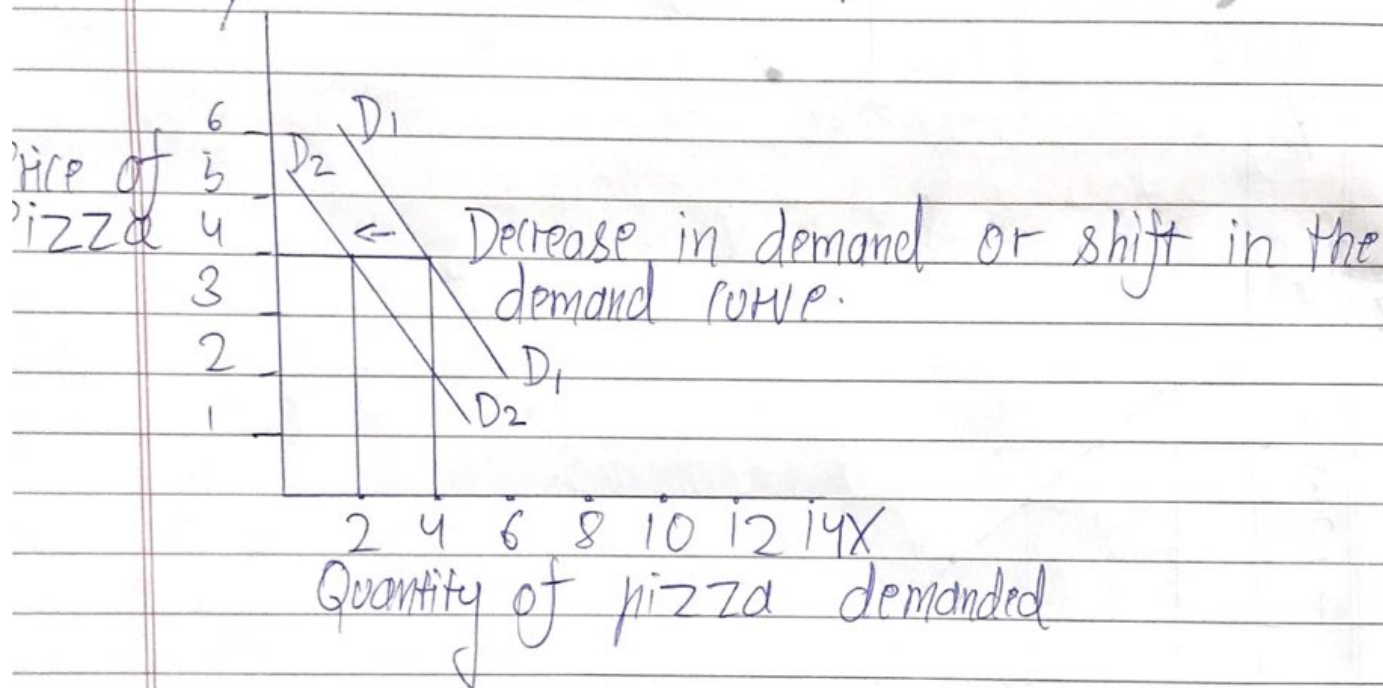 6
D1
D2
Price of 5
Pizza 4
← Decrease in demand or shift in the
3
demand curve.
2
D1
1
D2
2 4 6 8 10 12 14X
Quantity of pizza demanded